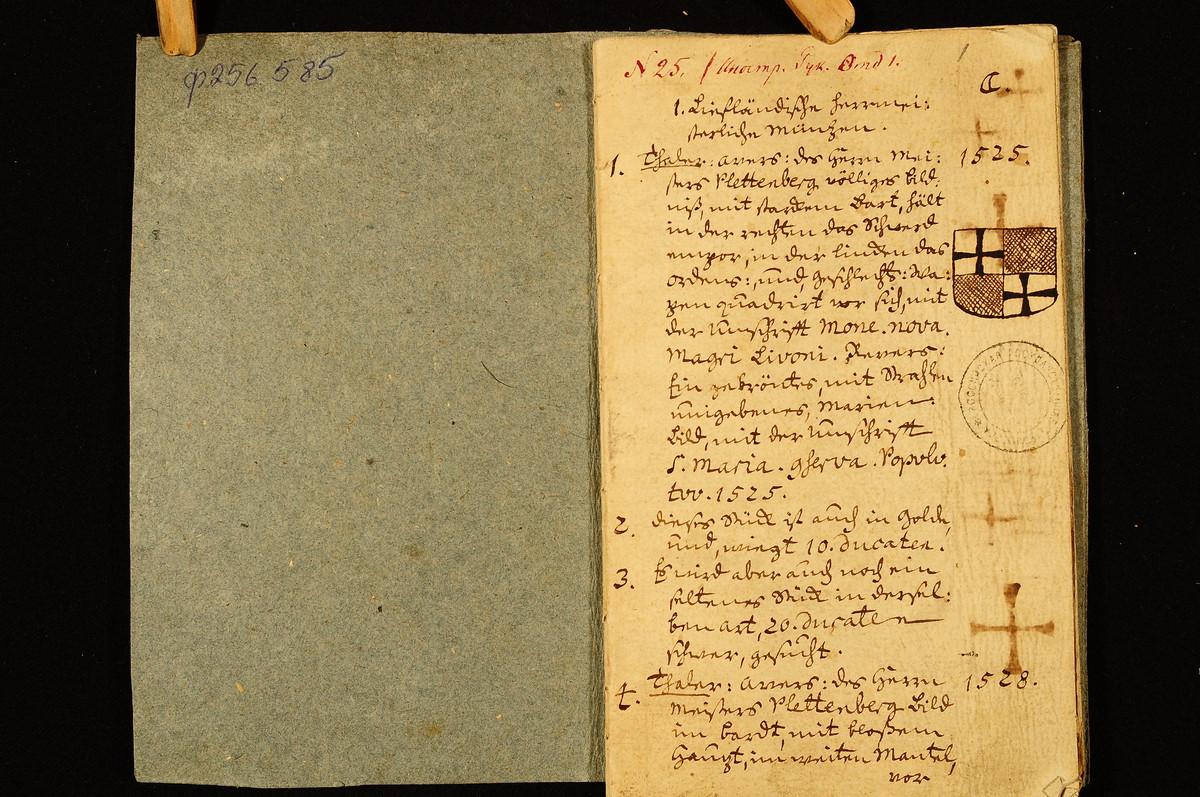 ф256 585
N 25. / Иностр. Рук. Отд 1.
1
C.
1. Liefländische Herrmei:
sterliche Müntzen.
1. Thaler: avers: des Herrn Mei: 1525.
sters Plettenberg völliges Bild:
niß, mit starckem Bart, hält
in der rechten das Schwerd
empor, in der lincken das
ordens: und geschlechts: Wa:
pen quadrirt vor sich, mit
der Umschrifft Mone. nova.
Magri Livoni. Revers:
Ein gekröntes, mit Strahlen
umgebenes, Marien:
bild, mit der Umschrifft
S. Maria. gherva. Popolo.
tvv. 1525.
2. dieses Stück ist auch in Golde,
und wiegt 10. Ducaten.
3. Es wird aber auch noch ein
seltenes Stück in dersel:
ben art, 20. Ducaten
schwer, gesucht.
4. Thaler: avers: des Herrn 1528.
Meisters Plettenberg Bild
im bardt, mit bloßem
Haupt, im weiten Mantel,
vor